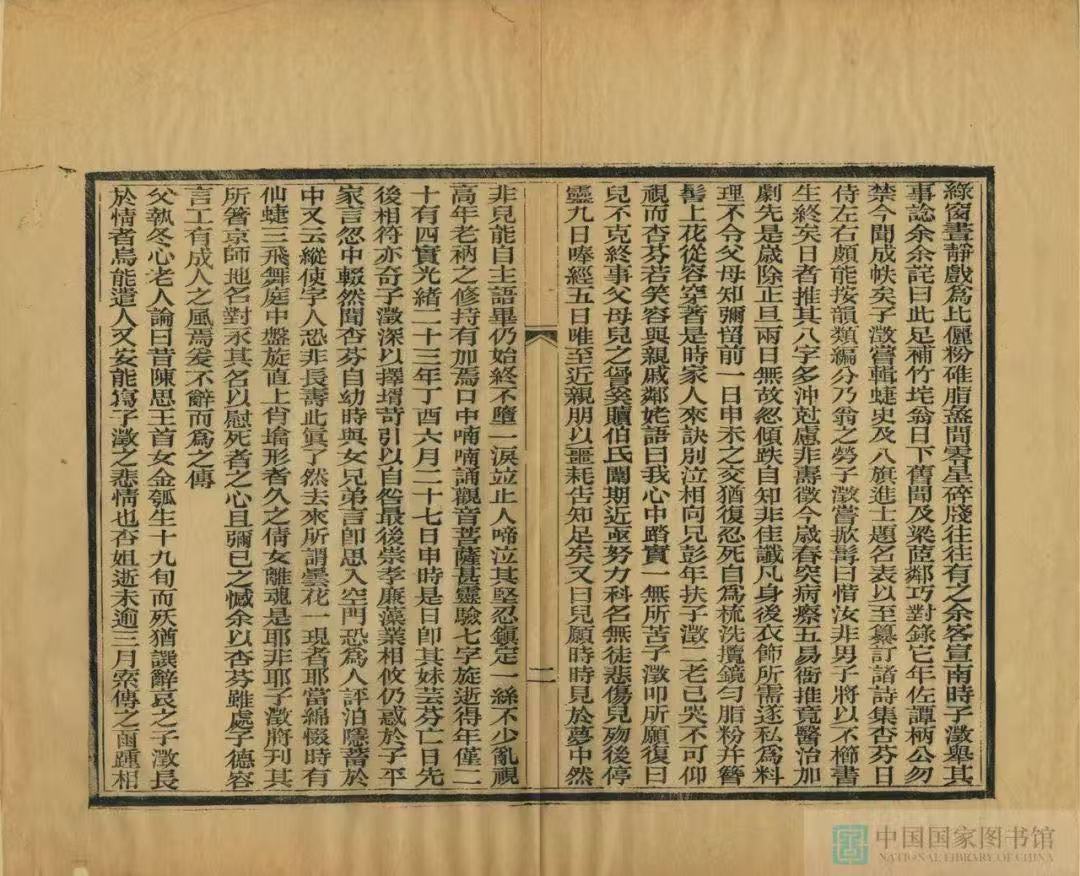 綠窗晝靜戲為比儷粉碓脂盝間零星碎牋往往有之余客宣南時子澂舉其
事諗余余詫曰此足補竹垞翁日下舊聞及梁茝鄰巧對錄它年佐譚柄公勿
禁今聞成帙矣子澂嘗輯蜨史及八旗進士題名表以至纂訂諸詩集杏芬日
侍左右頗能按韻類編分乃翁之勞子澂嘗掀髯曰惜汝非男子將以不櫛書
生終矣日者推其八字多沖尅慮非壽徵今歲春突病瘵五易衖推竟醫治加
劇先是歲除正旦兩日無故忽傾跌自知非佳讖凡身後衣飾所需逐私為料
理不令父母知彌留前一日申未之交猶復忍死自為梳洗攬鏡勻脂粉并簪
髻上花從容穿著是時家人來訣別泣相向兄彭年扶子澂二老已哭不可仰
視而杏芬若笑容與親戚鄰姥語曰我心中踏實一無所苦子澂叩所願復曰
兒不克終事父母兒之咎奚贖伯氏闈期近亟努力科名無徒悲傷兒歿後停
靈九日唪經五日唯至近親朋以噩耗告知足矣又曰兒願時時見於夢中然
二
非兒能自主語畢仍始終不墮一淚竝止人啼泣其堅忍鎮定一絲不少亂視
高年老衲之修持有加焉口中喃喃誦觀音菩薩甚靈驗七字旋逝得年僅二
十有四實光緒二十三年丁酉六月二十七日申時是日卽其妹芸芬亡日先
後相符亦奇子澂深以擇壻苛引以自咎最後崇孝廉藻業相攸仍惑於子平
家言忽中輟然聞杏芬自幼時與女兄弟言卽思入空門恐為人評泊隱蓄於
中又云縱使字人恐非長壽此眞了然去來所謂曇花一現者耶當綿惙時有
仙蜨三飛舞庭中盤旋直上肖墖形者久之倩女離魂是耶非耶子澂將刊其
所著京師地名對永其名以慰死者之心且彌己之憾余以杏芬雖處子德容
言工有成人之風焉爰不辭而為之傳
父執冬心老人論曰昔陳思王首女金瓠生十九旬而殀猶譔辭哀之子澂長
於情者烏能遣人又安能寫子澂之悲情也杏姐逝未逾三月索傳之函踵相
中国国家图书馆
NATIONAL LIBRARY OF CHINA